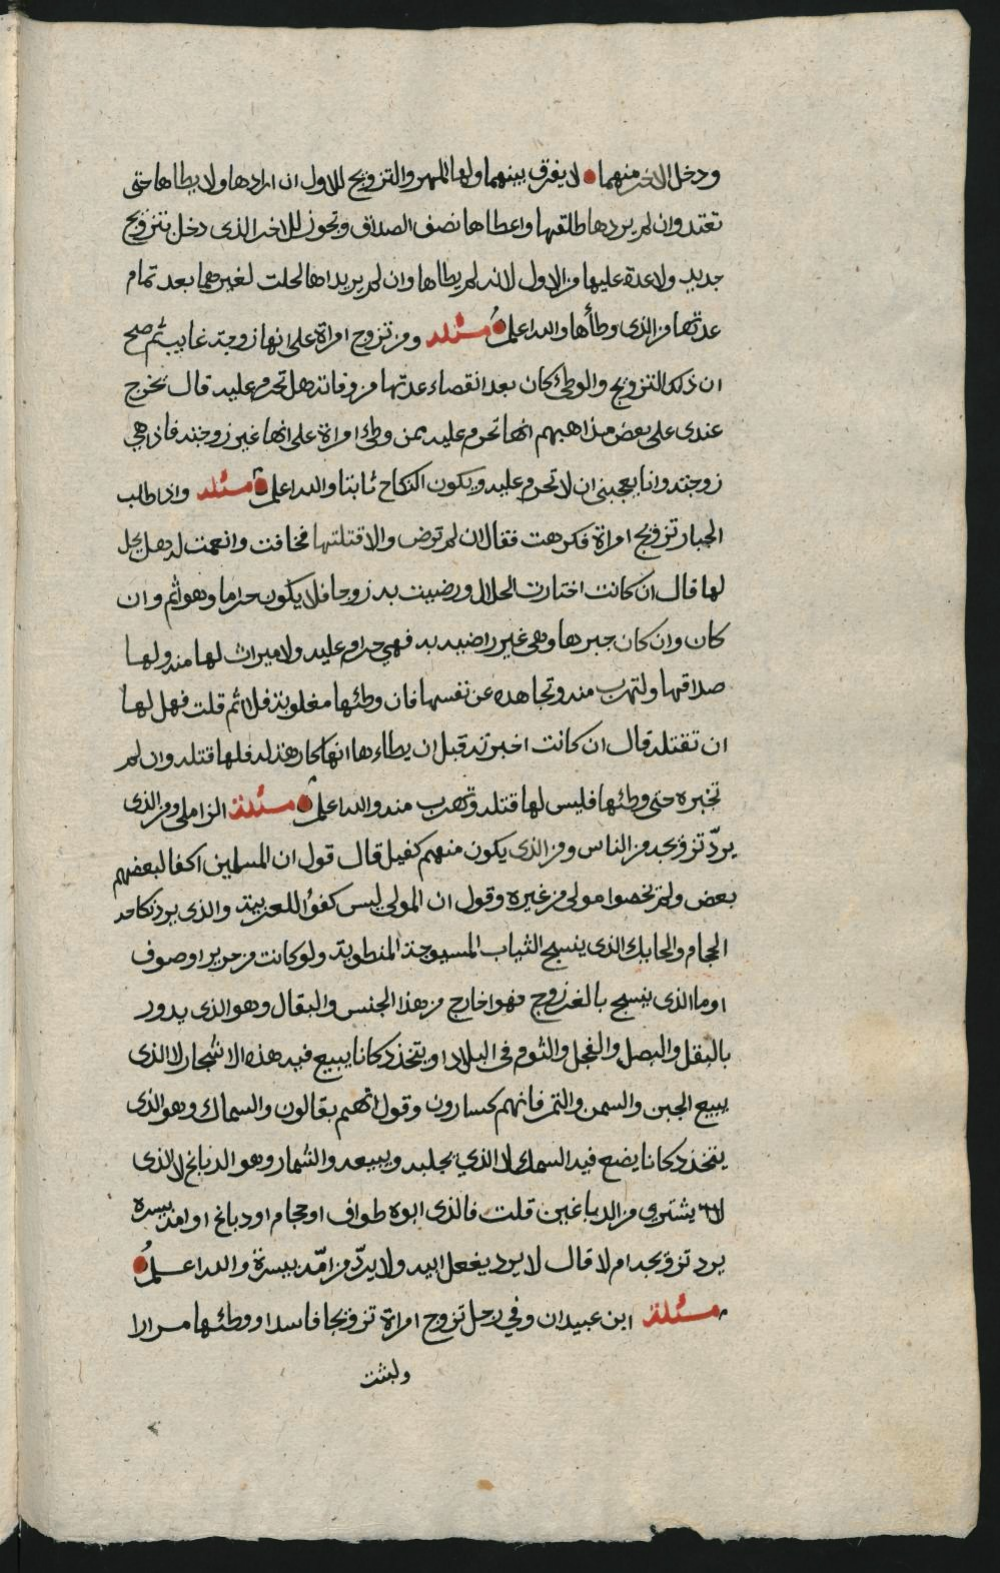 ودخل الاخر منهما لا يفرق بينهما ولها المهر والتزويج للاول ان ارادها ولا يطاها حتى
تعتد وان لم يردها طلقها واعطاها نصف الصداق ويجوز للاخر الذى دخل تزويج
جديد ولا عدة عليها من الاول لانه لم يطاها وان لم يريداها لحلت لغيرهما بعد تمام
عدتها من الذى وطأها والله اعلم مسئله ومن تزوج امراة على انها زوجة غايب ثم صح
ان ذلك التزويج والوطئ كان بعد انقضاء عدتها من وفاته هل تحرم عليه قال تخرج
عندى على بعض مذاهبهم انها تحرم عليه بمن وطئ امراة على انها غير زوجته فاذا هي
زوجته وانا يعجبنى ان لا تحرم عليه ويكون النكاح ثابتا والله اعلم مسئله واذا طلب
الجبار تزويج امراة فكرهت فقال ان لم ترض والا قتلتها فخافت وانعمت له هل يحل
لها قال ان كانت اختارت الحلال ورضيت به زوجا فلا يكون حراما وهو اثم وان
كان وان كان جبرها وهى غير راضيه به فهي حرام عليه ولا ميراث لها منه ولها
صداقها ولتهرب منه وتجاهده عن نفسها فان وطئها مغلوبة فلا اثم قلت فهل لها
ان تقتله قال ان كانت اخبرته قبل ان يطاءها انها كارهة له فلها قتله وان لم
تخبره حتى وطئها فليس لها قتله وتهرب منه والله اعلم مسئلة الزاملى ومن الذى
يردّ تزويجه من الناس ومن الذى يكون منهم كفيل قال قول ان المسلمين اكفا لبعضهم
بعض ولم يخصوا مولى من غيره وقول ان المولى ليس كفوا للعربية والذى يرد نكاحه
الحجام والحايك الذى ينسج الثياب المسيوحة المنطوية ولو كانت من حرير او صوف
اوما الذى ينسج بالغزوج فهو اخارج من هذا الجنس والبقال وهو الذى يدور
بالبقل والبصل والفجل والثوم فى البلاد او يتخذ دكانا يبيع فيه هذه الاشجار لا الذى
يبيع الجبن والسمن والتمر فانهم كسارون وقول انهم بقالون والسماك وهو الذى
يتخذ دكانا يضع فيه السمك لا الذي يجلبه ويبيعه والشمار وهو الدباغ لا الذى
يشترى من الدباغين قلت فالذى ابوه طواف او حجام او دباغ او امه بيسرة
يرد تزويجه ام لا قال لا يرد بفعل ابيه ولا يردّ من امّه بيسرة والله اعلم
مسئلة ابن عبيدان وفي رجل تزوج امراة تزويجا فاسدا ووطئها مرارا
ولبثت